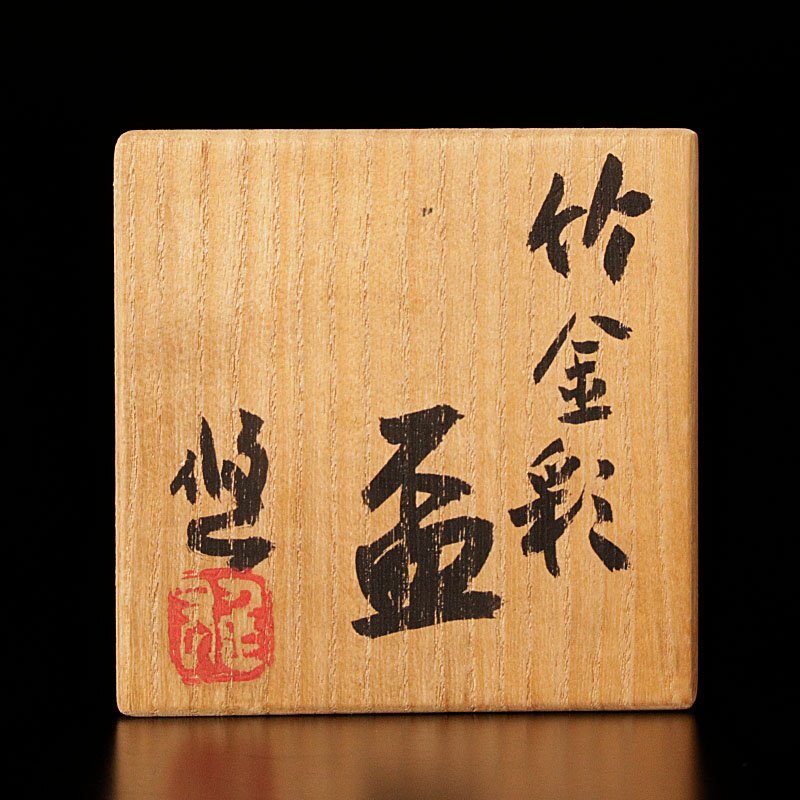 竹金彩
盃